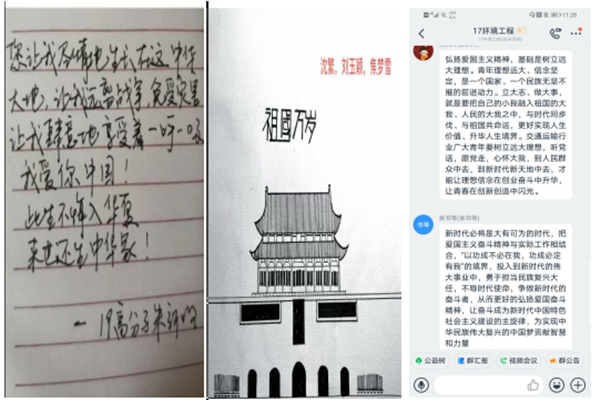 您让我尽情地生长在这中华
大地，让我远离战争，免受灾害
让我肆意地享受着一呼一吸
我爱你中国！
此生不悔入华夏
来世还生中华家！
沈繁，刘玉颖，焦梦雪
祖國万岁
11:28
17环境工程
弘扬爱国主义精神，基础是树立远
大理想。青年理想远大、信念坚
定，是一个国家、一个民族无坚不
摧的前进动力。立大志、做大事，
就是要把自己的小我融入祖国的大
我、人民的大我之中，与时代同步
伐、与祖国共命运，更好实现人生
价值、升华人生境界。交通运输行
业广大青年要树立远大理想，听党
话，跟党走，心怀大我，到人民群
众中去，到新时代新天地中去，才
能让理想信念在创业奋斗中升华，
让青春在创新创造中闪光。
新时代必将是大有可为的时代，把
爱国主义奋斗精神与实际工作相结
合，“以功成不必在我，功成必定
有我”的境界，投入到新时代的伟
大事业中，勇于担当民族复兴大
任，不辱时代使命，争做新时代的
奋斗者，从而更好的弘扬爱国奋斗
精神，让奋斗成为新时代中国特色
社会主义建设的主旋律，为实现中
华民族伟大复兴的中国梦贡献智慧
和力量
公益树 群汇报 视频会议 群公告